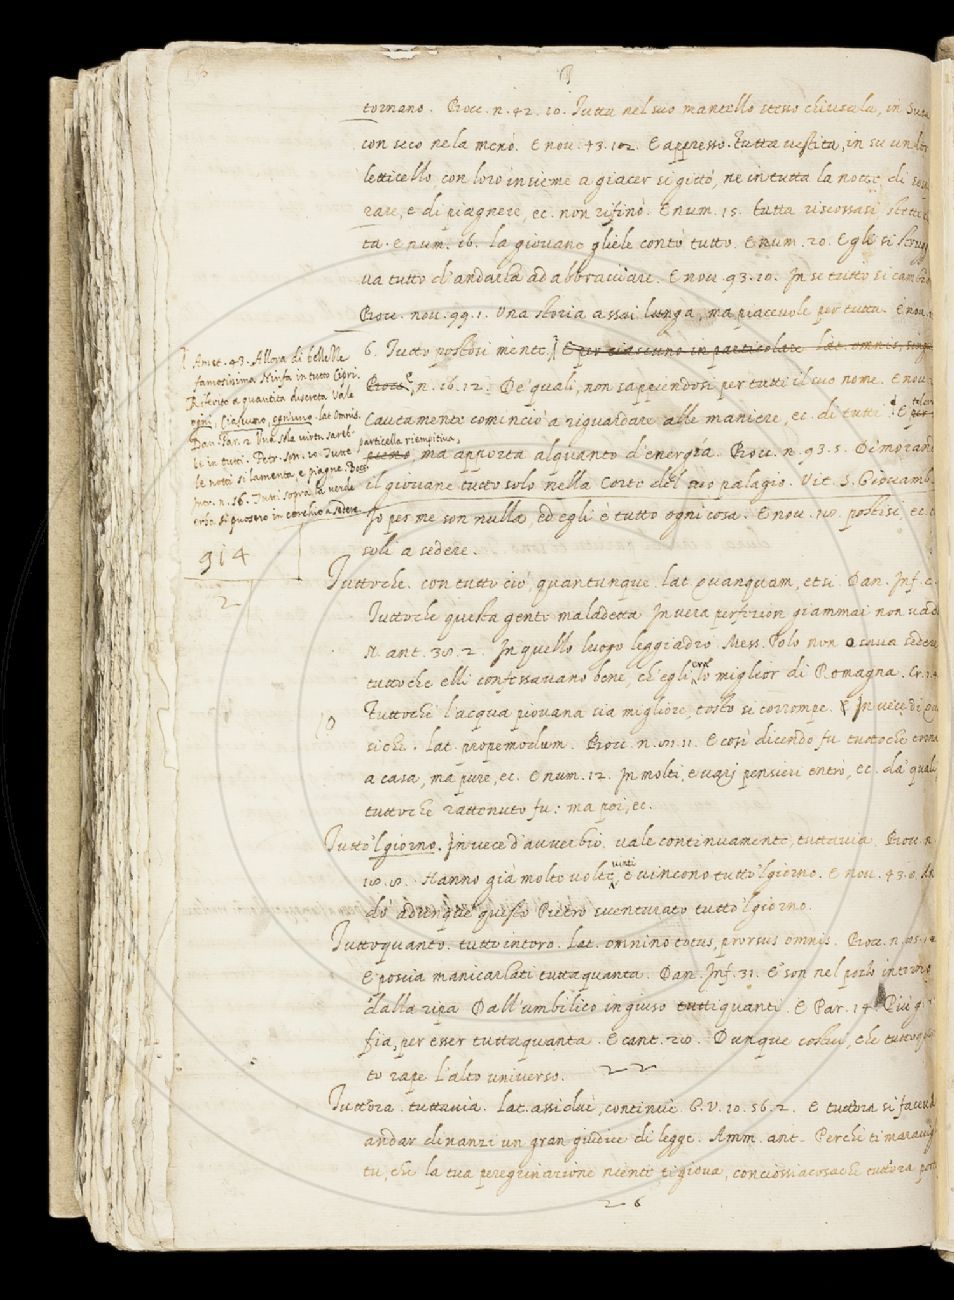 T
tornano. Bocc. n. 42. 10. Tutta nel suo mantello stesso chiusala, in
con seco ne la menò. E nov. 43. E appresso. tutta vestita, in su un
letticello, con loro insieme a giacer si gittò, ne in tutta la notte di
rare, e di piagnere, ec. non rifinò. E num. 15. tutta riscossasi, stette
ta. E num. 16. la giovane gliele contò tutto. E num. 20. Egli si
va tutto d'andarla ad abbracciare. E nov. 93. 10. In se tutto si cambiò
Bocc. nov. 99. 1. Una storia assai lunga, ma piacevole per tutta. E nov.
6. Tutto postosi mente. E per ciascuno in particolare lat. omnis,
Bocc. n. 16. 12. De' quali, non sappiendosi per tutti il suo nome. E nov.
Cautamente cominciò a riguardare alle maniere, ec. di tutti. E talor
particella riempitiva,
pieno, ma apporta alquanto d'energía. Bocc. n. 93. 5. Dimorando
il giovane tutto solo nella Corte del suo palagio. Vit. S. Giovamb.
Io per me son nulla, ed egli è tutto ogni cosa. E nov. postisi, ec.
soli a sedere.
Amet. 43. Allora di bellezza
famosissima Ninfa in tutto Cipri.
Riferito a quantita discreta Vale
ogni, Ciascuno, ogniuno. lat. Omnis.
Dan. Par. 2 Una sola virtù sareb-
be in tutti. Petr. son. 10. Tutte
le notti si lamenta, e piagne. Bocc.
Intr. n. 56. Tutti sopra la verde
erba si puosero in cerchio a sedere.
914
2
Tuttochè. con tutto ciò, quantunque. lat. quanquam, etsi. Dan. Inf.
Tuttochè questa gente maladetta In vera perfezion giammai non vada
N. ant. 2. In quello luogo leggiadro Mess. Polo non osava sedere
tuttochè elli confessavano bene, ch'egli era lo miglior di Romagna. Cr.
Tuttochè l'acqua piovana sia migliore, tosto si corrompe. In vece di
sichè. lat. propemodum. Bocc. n. 11. E così dicendo fu tuttochè tornata
a casa, ma pure, ec. E num. 12. In molti, e varj pensieri entrò, ec. da' quali
tuttochè rattenuto fu: ma poi, ec.
10
Tutto'l giorno. In vece d'avverbio. vale continuamente, tuttavia. Bocc. n.
Hanno già molte volte vinti, e vincono tutto'l giorno. E nov. 43. 8.
dò adunque questo Pietro sventurato tutto'l giorno.
Tuttoquanto. tutto intero. Lat. omnino totus, prorsus omnis. Bocc. n.
E poscia manicarlati tuttaquanta. Dan. Inf. 31. E son nel pozzo intorno
dalla ripa Dall'umbilico in giuso tutti quanti. E Par. 14.
fia, per esser tuttaquanta. E cant. 28. Dunque costui, che
to rape l'alto universo.
Tuttora. tuttavia. Lat. assiduè, continuè. G. V. 10. 56. 2. E tuttora si facea
andar dinanzi un gran giudice di legge. Amm. ant. Perchè ti maravigli
tu, che la tua peregrinazione niente ti giova, conciossiacosachè tuttora